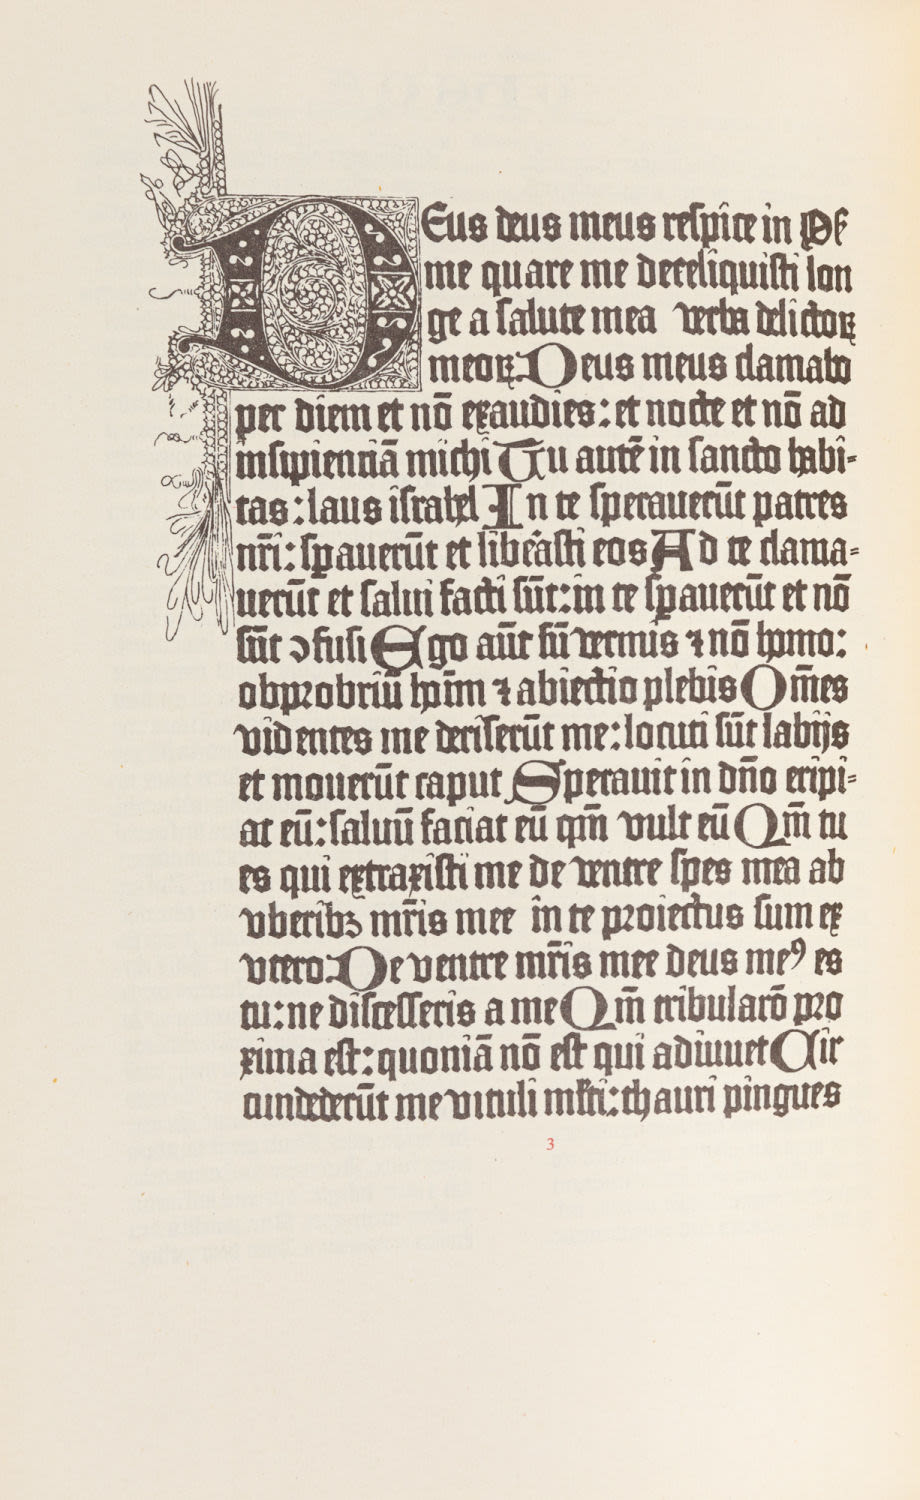 DEus deus meus respice in Ps
me quare me dereliquisti lon
ge a salute mea verba delictoꝝ
meoꝝ Deus meus clamabo
per diem et nō exaudies: et nocte et nō ad
insipienciā michi Tu autē in sancto habi-
tas: laus israhel In te sperauerūt patres
nr̄i: sꝑauerūt et liberasti eos Ad te clama-
uerūt et salui facti sūt: in te sꝑauerūt et nō
sūt ↄfusi Ego aūt sū vermis ⁊ nō homo:
obprobriū hoīm ⁊ abiectio plebis Om̄es
videntes me deriserūt me: locuti sūt labijs
et mouerūt caput Sperauit in dn̄o eripi-
at eū: saluū faciat eū qm̄ vult eū Qm̄ tu
es qui extraxisti me de ventre spes mea ab
vberibꝫ mr̄is mee in te proiectus sum ex
vtero: De ventre mr̄is mee deus meꝰ es
tu: ne discesseris a me Qm̄ tribulacō pro
xima est: quoniā nō est qui adiuuet Cir
cundederūt me vituli ml̄ti: thauri pingues
3